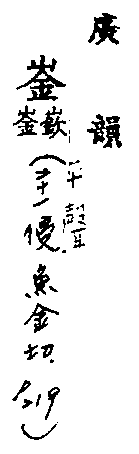 廣韻
崟
嶔崟
下平聲
(廿一侵魚金切 219)